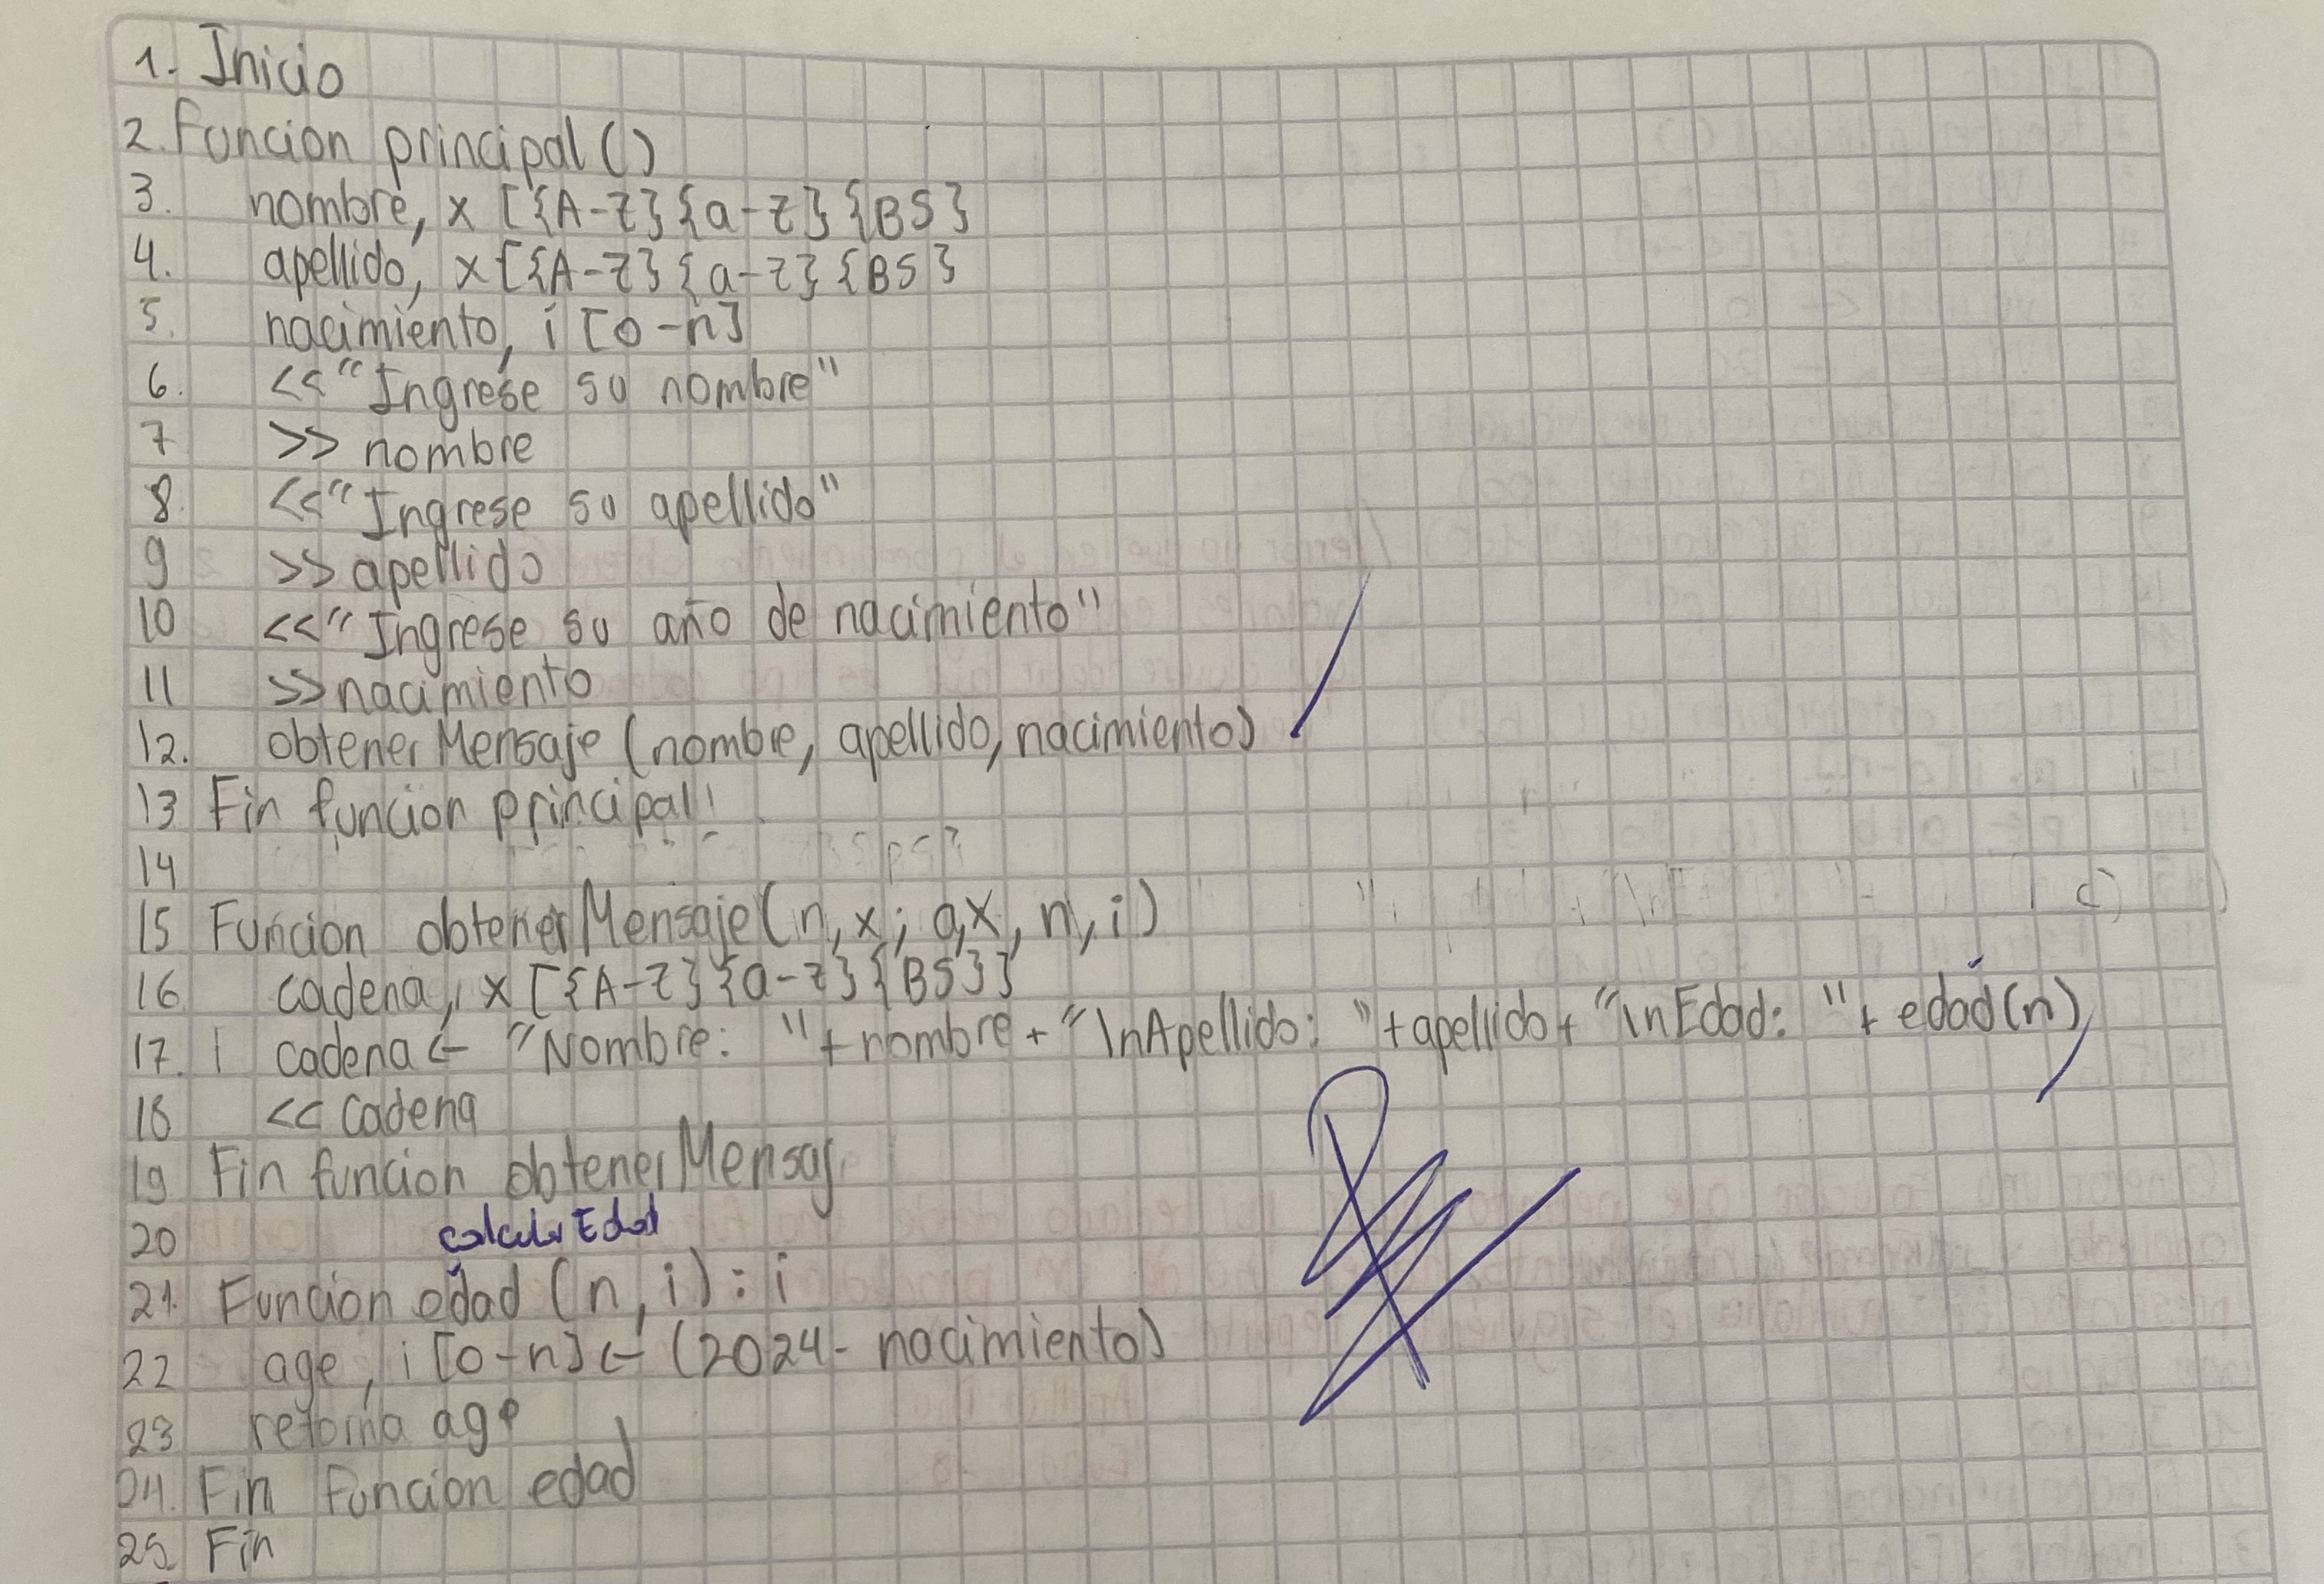 1. Inicio
2. Funcion principal ()
3. nombre, x [{A-Z}{a-z}{BS}
4. apellido, x [{A-Z}{a-z}{BS}
5. nacimiento, i [0-n]
6. <<"Ingrese su nombre"
7 >> nombre
8. <<"Ingrese su apellido"
9 >> apellido
10 <<"Ingrese su año de nacimiento"
11 >>nacimiento
12. obtenerMensaje (nombre, apellido, nacimiento)
13 Fin funcion principal
14
15 Funcion obtenerMensaje (n, x; a,x, n, i)
16 cadena, x [{A-Z}{a-z}{BS}]
17. cadena <- "Nombre: "+ nombre + "\nApellido: "+apellido+ "\nEdad: "+ edad(n)
18 << cadena
19 Fin funcion obtenerMensaj
20 calcular Edad
21. Funcion edad (n, i) : i
22 age, i [0-n] <- (2024- nacimiento)
23 retorna age
24. Fin funcion edad
25. Fin